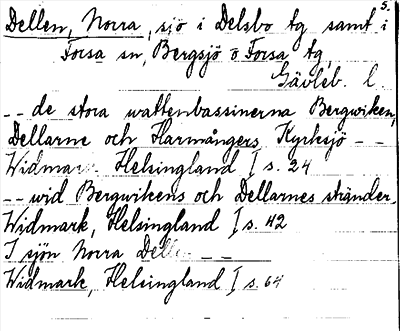 5.
Dellen, Norra, sjö i Delsbo tg samt i
Forsa sn, Bergsjö o Forsa tg,
Gävleb. l.
-- de stora wattenbassinerna Bergwiken,
Dellarne och Harmångers Kyrksjö --
Widmark, Helsingland I s. 24
-- wid Bergwikens och Dellarnes stränder.
Widmark, Helsingland I s. 42
I sjön Norra Dellen --
Widmark, Helsingland I s. 64